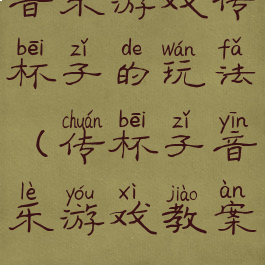 音乐游戏传
bēi zǐ de wán fǎ
杯子的玩法
chuán bēi zǐ yīn
(传杯子音
lè yóu xì jiào àn
乐游戏教案